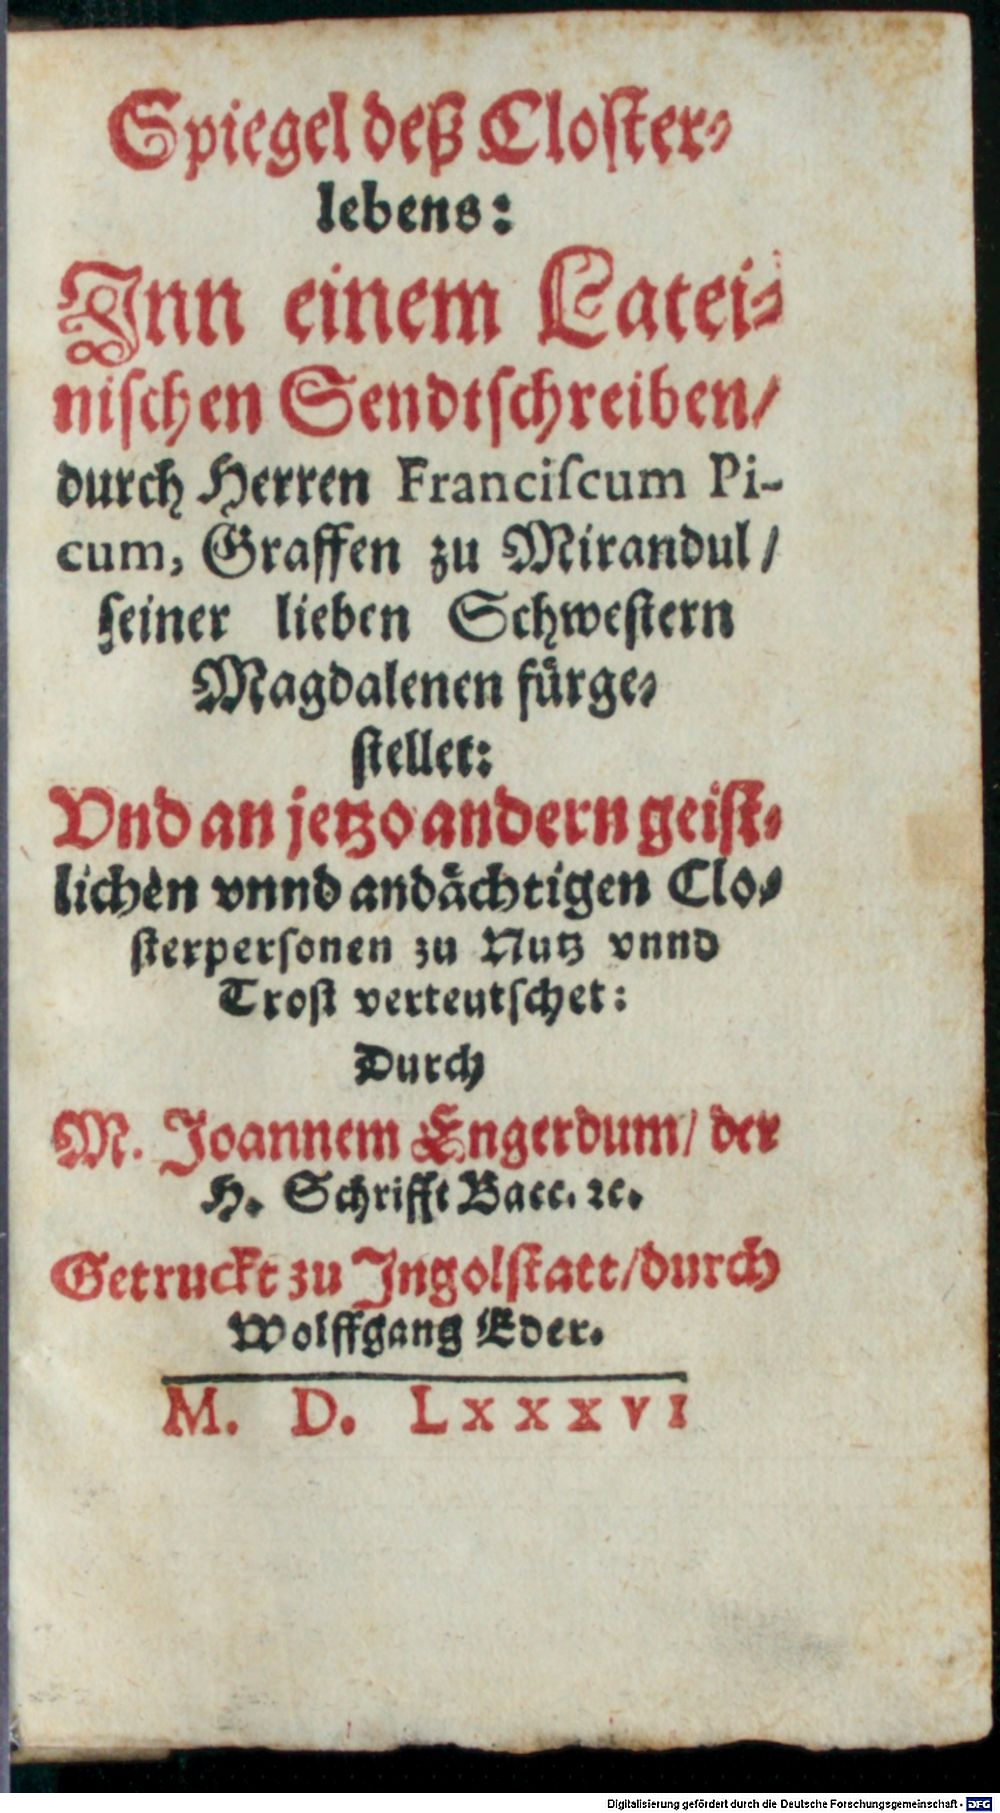 Spiegel deß Closter-
lebens:
Inn einem Latei-
nischen Sendtschreiben/
durch Herren Franciscum Pi-
cum, Graffen zu Mirandul/
seiner lieben Schwestern
Magdalenen fürge-
stellet:
Vnd an jetzo andern geist-
lichen vnnd andächtigen Clo-
sterpersonen zu Nutz vnnd
Trost verteutschet:
Durch
M. Joannem Engerdum/ der
H. Schrifft Bacc. ꝛc.
Getruckt zu Ingolstatt/ durch
Wolffgang Eder.
M. D. LXXXVI
Digitalisierung gefördert durch die Deutsche Forschungsgemeinschaft - DFG